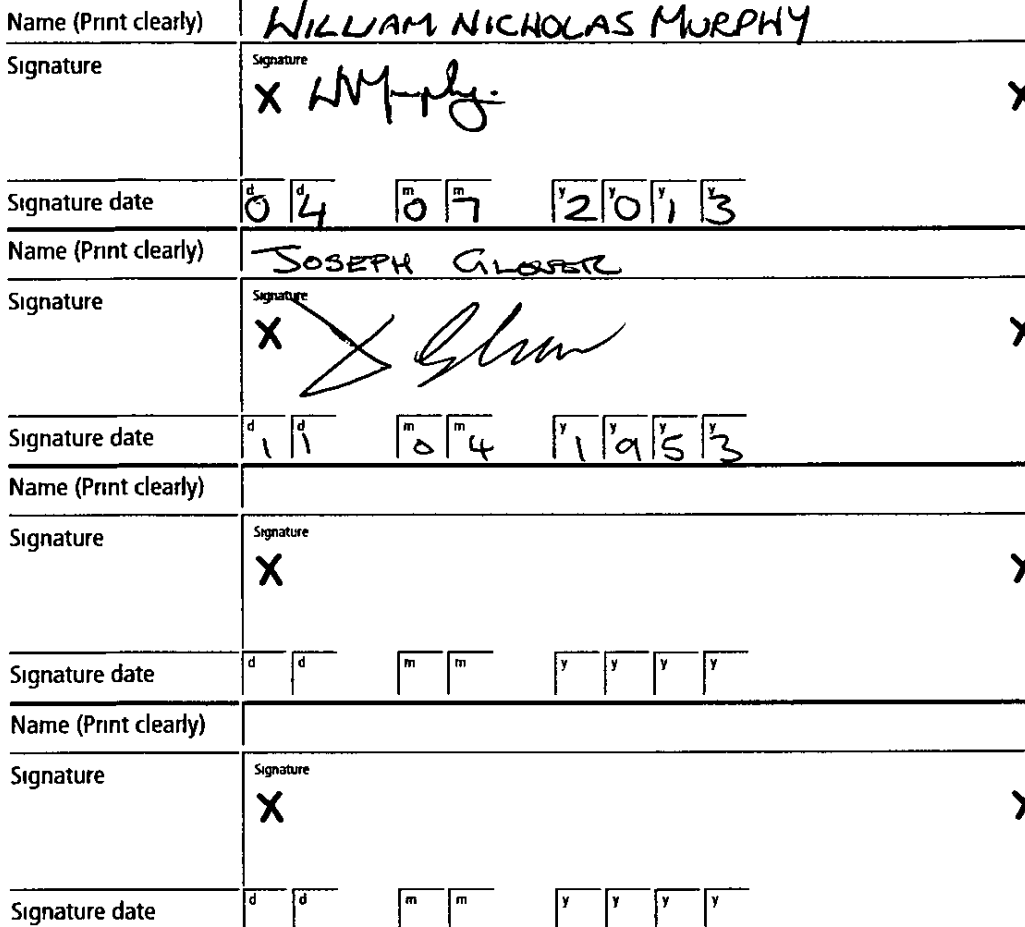 Name (Print clearly) WILLIAM NICHOLAS MURPHY
Signature Signature
X WNMurphy. X
Signature date d0 d4 m0 m7 y2 y0 y1 y3
Name (Print clearly) JOSEPH GLOVER
Signature Signature
X J Glover X
Signature date d1 d1 m0 m4 y1 y9 y5 y3
Name (Print clearly)
Signature Signature
X X
Signature date d d m m y y y y
Name (Print clearly)
Signature Signature
X X
Signature date d d m m y y y y